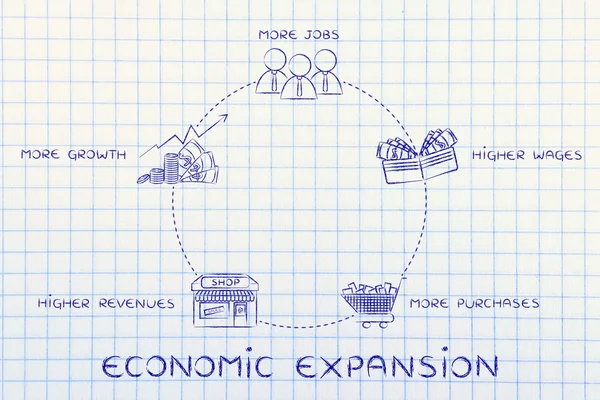 MORE JOBS
MORE GROWTH
HIGHER WAGES
SHOP
HIGHER REVENUES
MORE PURCHASES
ECONOMIC EXPANSION